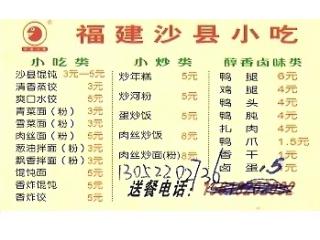 福建沙县小吃
小吃类
沙县馄饨 3元—5元
清香蒸饺 3元
爽口水饺 5元
青菜面（粉） 3元
雪菜面（粉） 3元
肉丝面（粉） 5元
葱油拌面（粉） 3元
飘香拌面（粉） 3元
馄饨面 5元
香炸馄饨 5元
香炸饺 5元
小炒类
炒年糕 5元
炒河粉 5元
蛋炒饭 5元
肉丝炒饭 8元
肉丝炒面(粉) 8元
醇香卤味类
鸭腿 6元
鸡腿 4元
鸭头 4元
鸭肫 4元
扎肉 4元
鸭爪 1.5元
香干 1元
卤蛋 1.5
送餐电话：